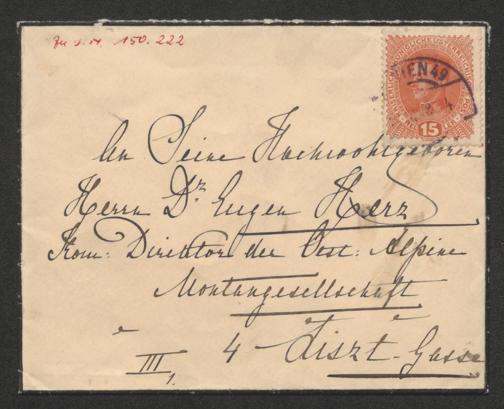 Zu I. N. 150.222
WIEN 49
15
An Seine Hochwohlgeboren
Herrn Dr Eugen Herz
Kom: Direktor der Oest: Alpine
Montangesellschaft
III, 4 Liszt-Gasse